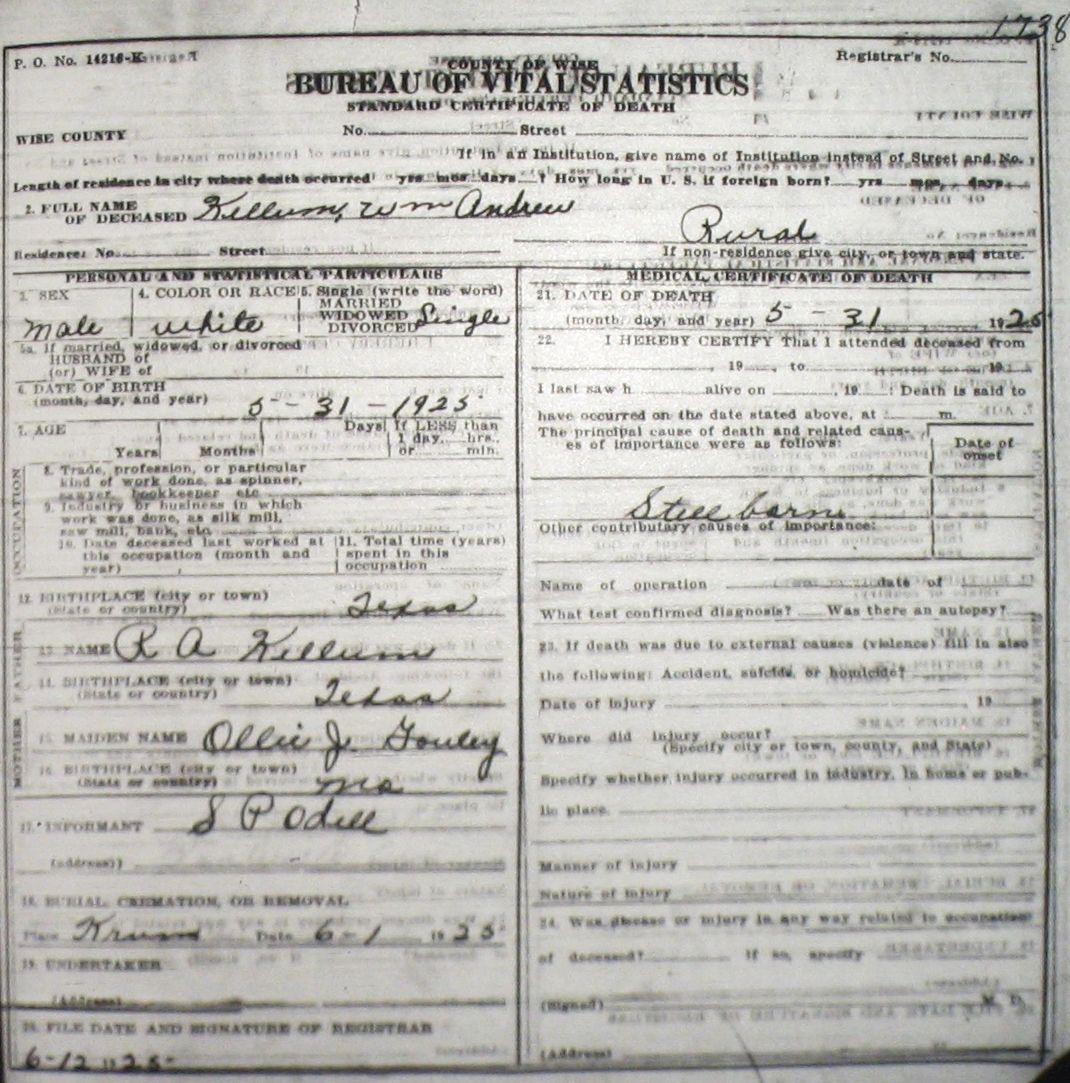 1738
P. O. No. 14216-K
Registrar's No.
COUNTY OF WISE
BUREAU OF VITAL STATISTICS
STANDARD CERTIFICATE OF DEATH
WISE COUNTY
No. Street
If in an Institution, give name of Institution instead of Street and No.
Length of residence in city where death occurred yrs mos. days ? How long in U. S. if foreign born? yrs mos. days
2. FULL NAME
OF DECEASED Kellum, Wm Andrew
Rural
Residence: No. Street
If non-residence give city, or town and state.
PERSONAL AND STATISTICAL PARTICULARS
3. SEX
male
4. COLOR OR RACE
white
5. Single (write the word)
MARRIED
WIDOWED
DIVORCED Single
5a. If married, widowed, or divorced
HUSBAND of
(or) WIFE of
6. DATE OF BIRTH
(month, day, and year) 5-31-1925
7. AGE
Years Months Days If LESS than
1 day, hrs.,
or min.
OCCUPATION
8. Trade, profession, or particular
kind of work done, as spinner,
sawyer, bookkeeper etc
9. Industry or business in which
work was done, as silk mill,
saw mill, bank, etc
10. Date deceased last worked at
this occupation (month and
year)
11. Total time (years)
spent in this
occupation
12. BIRTHPLACE (city or town)
(State or country) Texas
FATHER
13. NAME R A Kellum
14. BIRTHPLACE (city or town)
(State or country) Texas
MOTHER
15. MAIDEN NAME Ollie J.
16. BIRTHPLACE (city or town)
(State or country) Mo
17. INFORMANT S P Odell
(address)
18. BURIAL CREMATION, OR REMOVAL
Place Krum Date 6-1 1925
19. UNDERTAKER
(Address)
20. FILE DATE AND SIGNATURE OF REGISTRAR
6-12 1925
MEDICAL CERTIFICATE OF DEATH
21. DATE OF DEATH
(month, day, and year) 5-31 1925
22. I HEREBY CERTIFY That I attended deceased from
, 19 , to 19
I last saw h alive on , 19 : Death is said to
have occurred on the date stated above, at m.
The principal cause of death and related caus-
es of importance were as follows:
Date of
onset
Stillborn
Other contributary causes of importance:
Name of operation date of
What test confirmed diagnosis? Was there an autopsy?
23. If death was due to external causes (violence) fill in also
the following: Accident, suicide, or homicide?
Date of injury , 19
Where did injury occur?
(Specify city or town, county, and State)
Specify whether injury occurred in industry, in home or pub-
lic place.
Manner of injury
Nature of injury
24. Was disease or injury in any way related to occupation
of deceased? If so, specify
(Signed) M. D.
(Address)